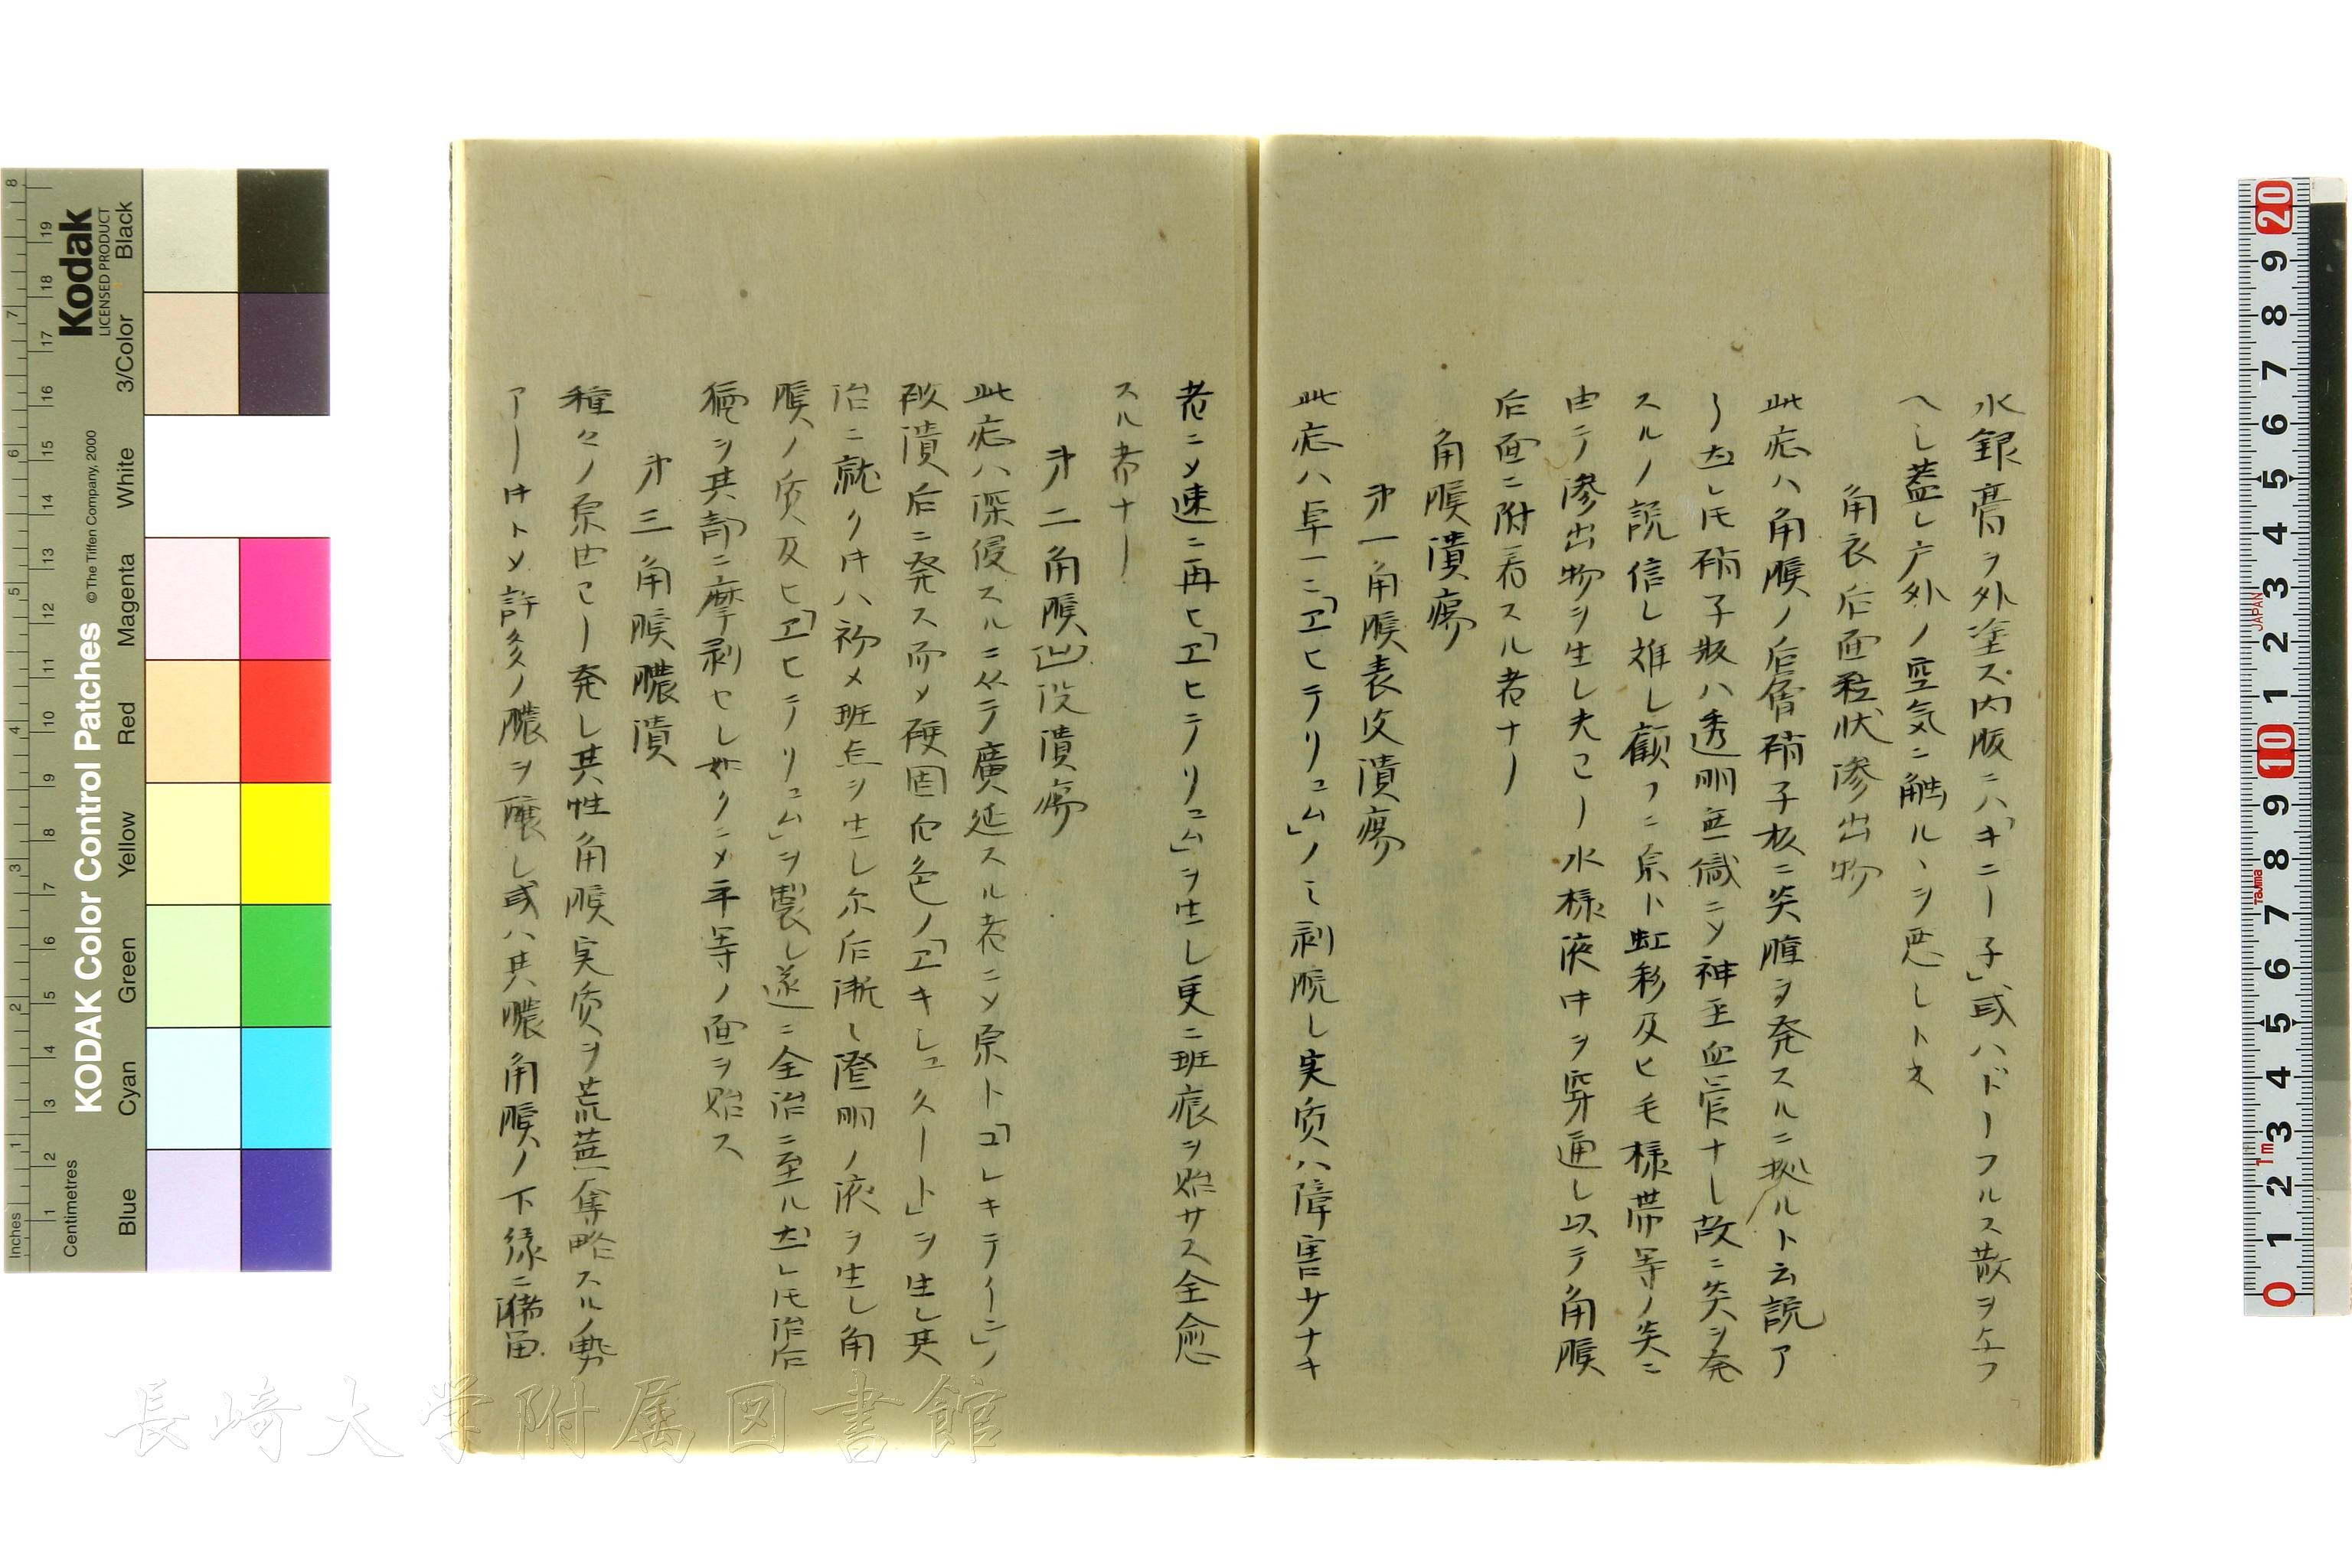 水銀膏ヲ外塗ス内服ニハ「キニー子」或ハドーフルス散ヲ与フ
ヘし蓋し戸外ノ空気ニ触ルヽヲ悪しトス
角衣后面粒状滲出物
此症ハ角膜ノ后層硝子板ニ炎腫ヲ発スルニ拠ルト云説ア
リ然レ𪜈硝子板ハ透明無傷ニメ神圣血管ナし故ニ炎ヲ発
スルノ説信し難し顧フニ原ト虹彩及ヒ毛様帯等ノ炎ニ
由テ滲出物ヲ生し夫ヨリ水様液中ヲ穿通し以テ角膜
后面ニ附着スル者ナリ
角膜潰瘍
第一角膜表皮潰瘍
此症ハ単一ニ「ヱヒテリュム」ノミ剥脱し実质ハ障害サナキ
者ニメ速ニ再ヒ「ヱヒテリュム」ヲ生し更ニ斑痕ヲ貽サス全愈
スル者ナリ
第二角膜凹没潰瘍
此症ハ深侵スルニ従テ廣延スル者ニメ原ト「コレキテイーニ」ノ
破潰后ニ発ス而メ硬固白色ノ「ヱキシュタート」ヲ生し其
治ニ就ク片ハ初メ斑点ヲ生し尓后漸し澄明ノ液ヲ生し角
膜ノ质及ヒ「ヱヒテリュム」ヲ製し遂ニ全治ニ至ル然レ𪜈治后
猶ヲ其部ニ摩剥セし如クニメ平等ノ面ヲ貽ス
第三角膜膿潰
種々ノ原由ヨリ発し其性角膜実质ヲ荒蕪奪略スルノ勢
アリ片トメ許多ノ膿ヲ醸し或ハ其膿角膜ノ下縁ニ瀦畄
Kodak
LICENSED PRODUCT
KODAK Color Control Patches
© The Tiffen Company, 2000
Inches
Centimetres
Blue
Cyan
Green
Yellow
Red
Magenta
White
3/Color
Black
JAPAN
Tajima
1m
長崎大学附属図書館